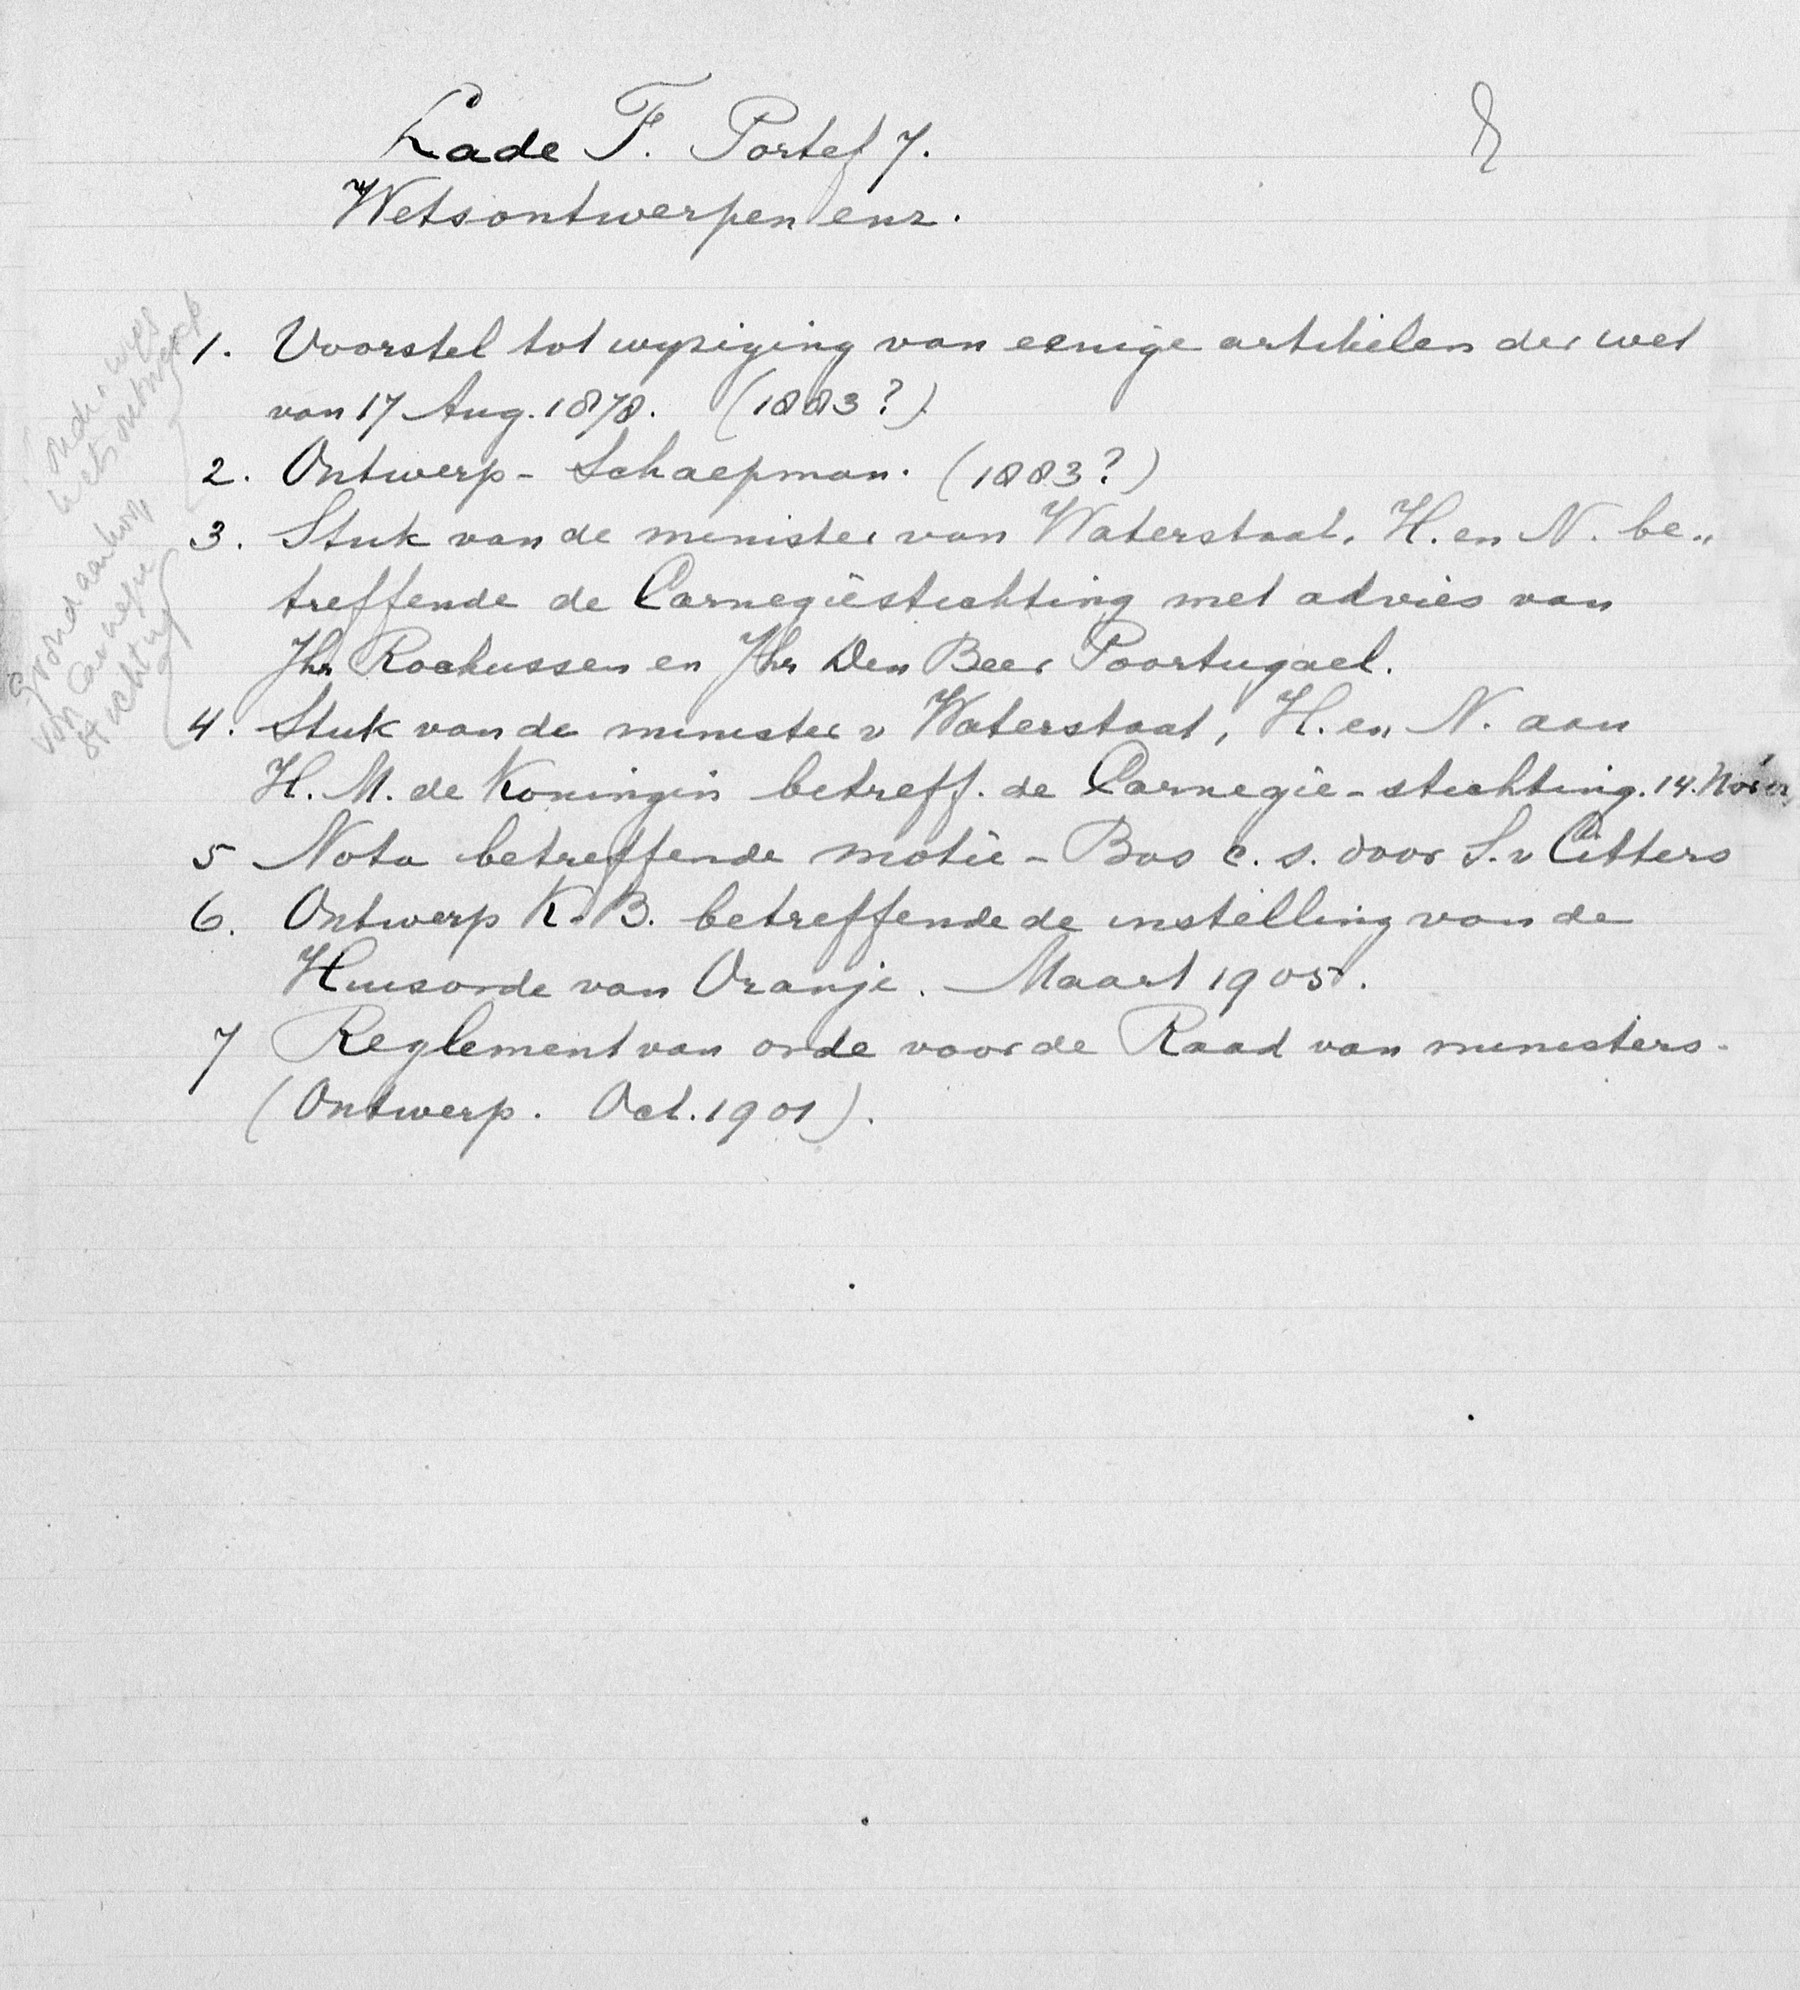 Lade F. Portef 7.
Wetsontwerpen enz.
onderwijs
wetsontwerp
1. Voorstel tot wyziging van eenige artikelen der wet
van 17 Aug. 1878. (1883?)
2. Ontwerp - Schaepman. (1883?)
grondaankoop
van Carnegie
stichting
3. Stuk van de minister van Waterstaat, H. en N. be„
treffende de Carnegiestichting met advies van
Jhr Rochussen en Jhr Den Beer Poortugael.
4. Stuk van de minister v Waterstaat, H. en N. aan
H. M. de Koningin betreff. de Carnegie-stichting. 14.
5 Nota betreffende motie - Bos c.s. door S. v Citters
6. Ontwerp K.B. betreffende de instelling van de
Huisorde van Oranje. Maart 1905.
7 Reglement van orde voor de Raad van ministers.
(Ontwerp. Oct. 1901).